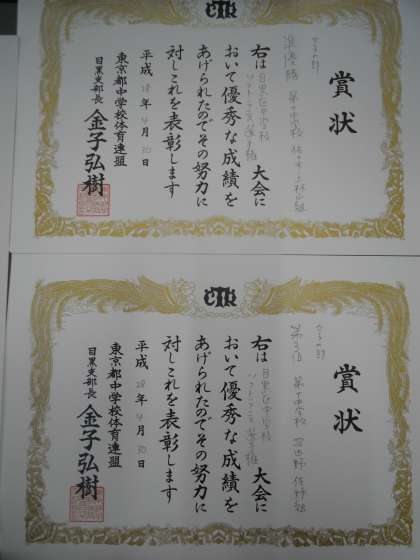 賞状
女子の部
準優勝 第十中学校
右は目黒区中学校
ソフトテニス選手権 大会に
おいて優秀な成績を
あげられたのでその努力に
対しこれを表彰します
平成28年4月30日
東京都中学校体育連盟
目黒支部長 金子弘樹
賞状
女子の部
第3位 第十中学校
右は目黒区中学校
ソフトテニス選手権 大会に
おいて優秀な成績を
あげられたのでその努力に
対しこれを表彰します
平成28年4月30日
東京都中学校体育連盟
目黒支部長 金子弘樹